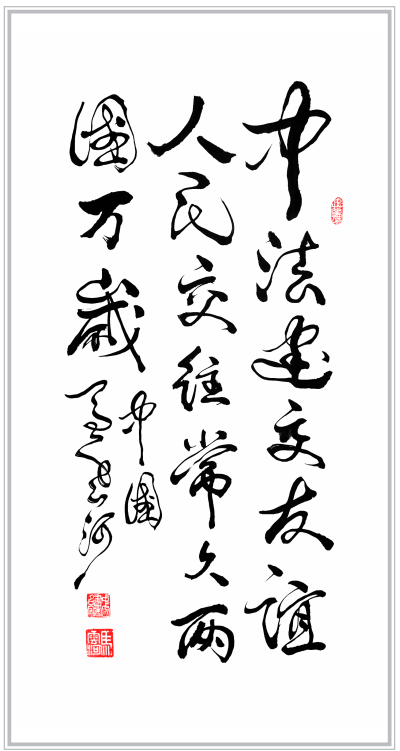 中法建交友谊
人民交往常久两
國万歲
中國